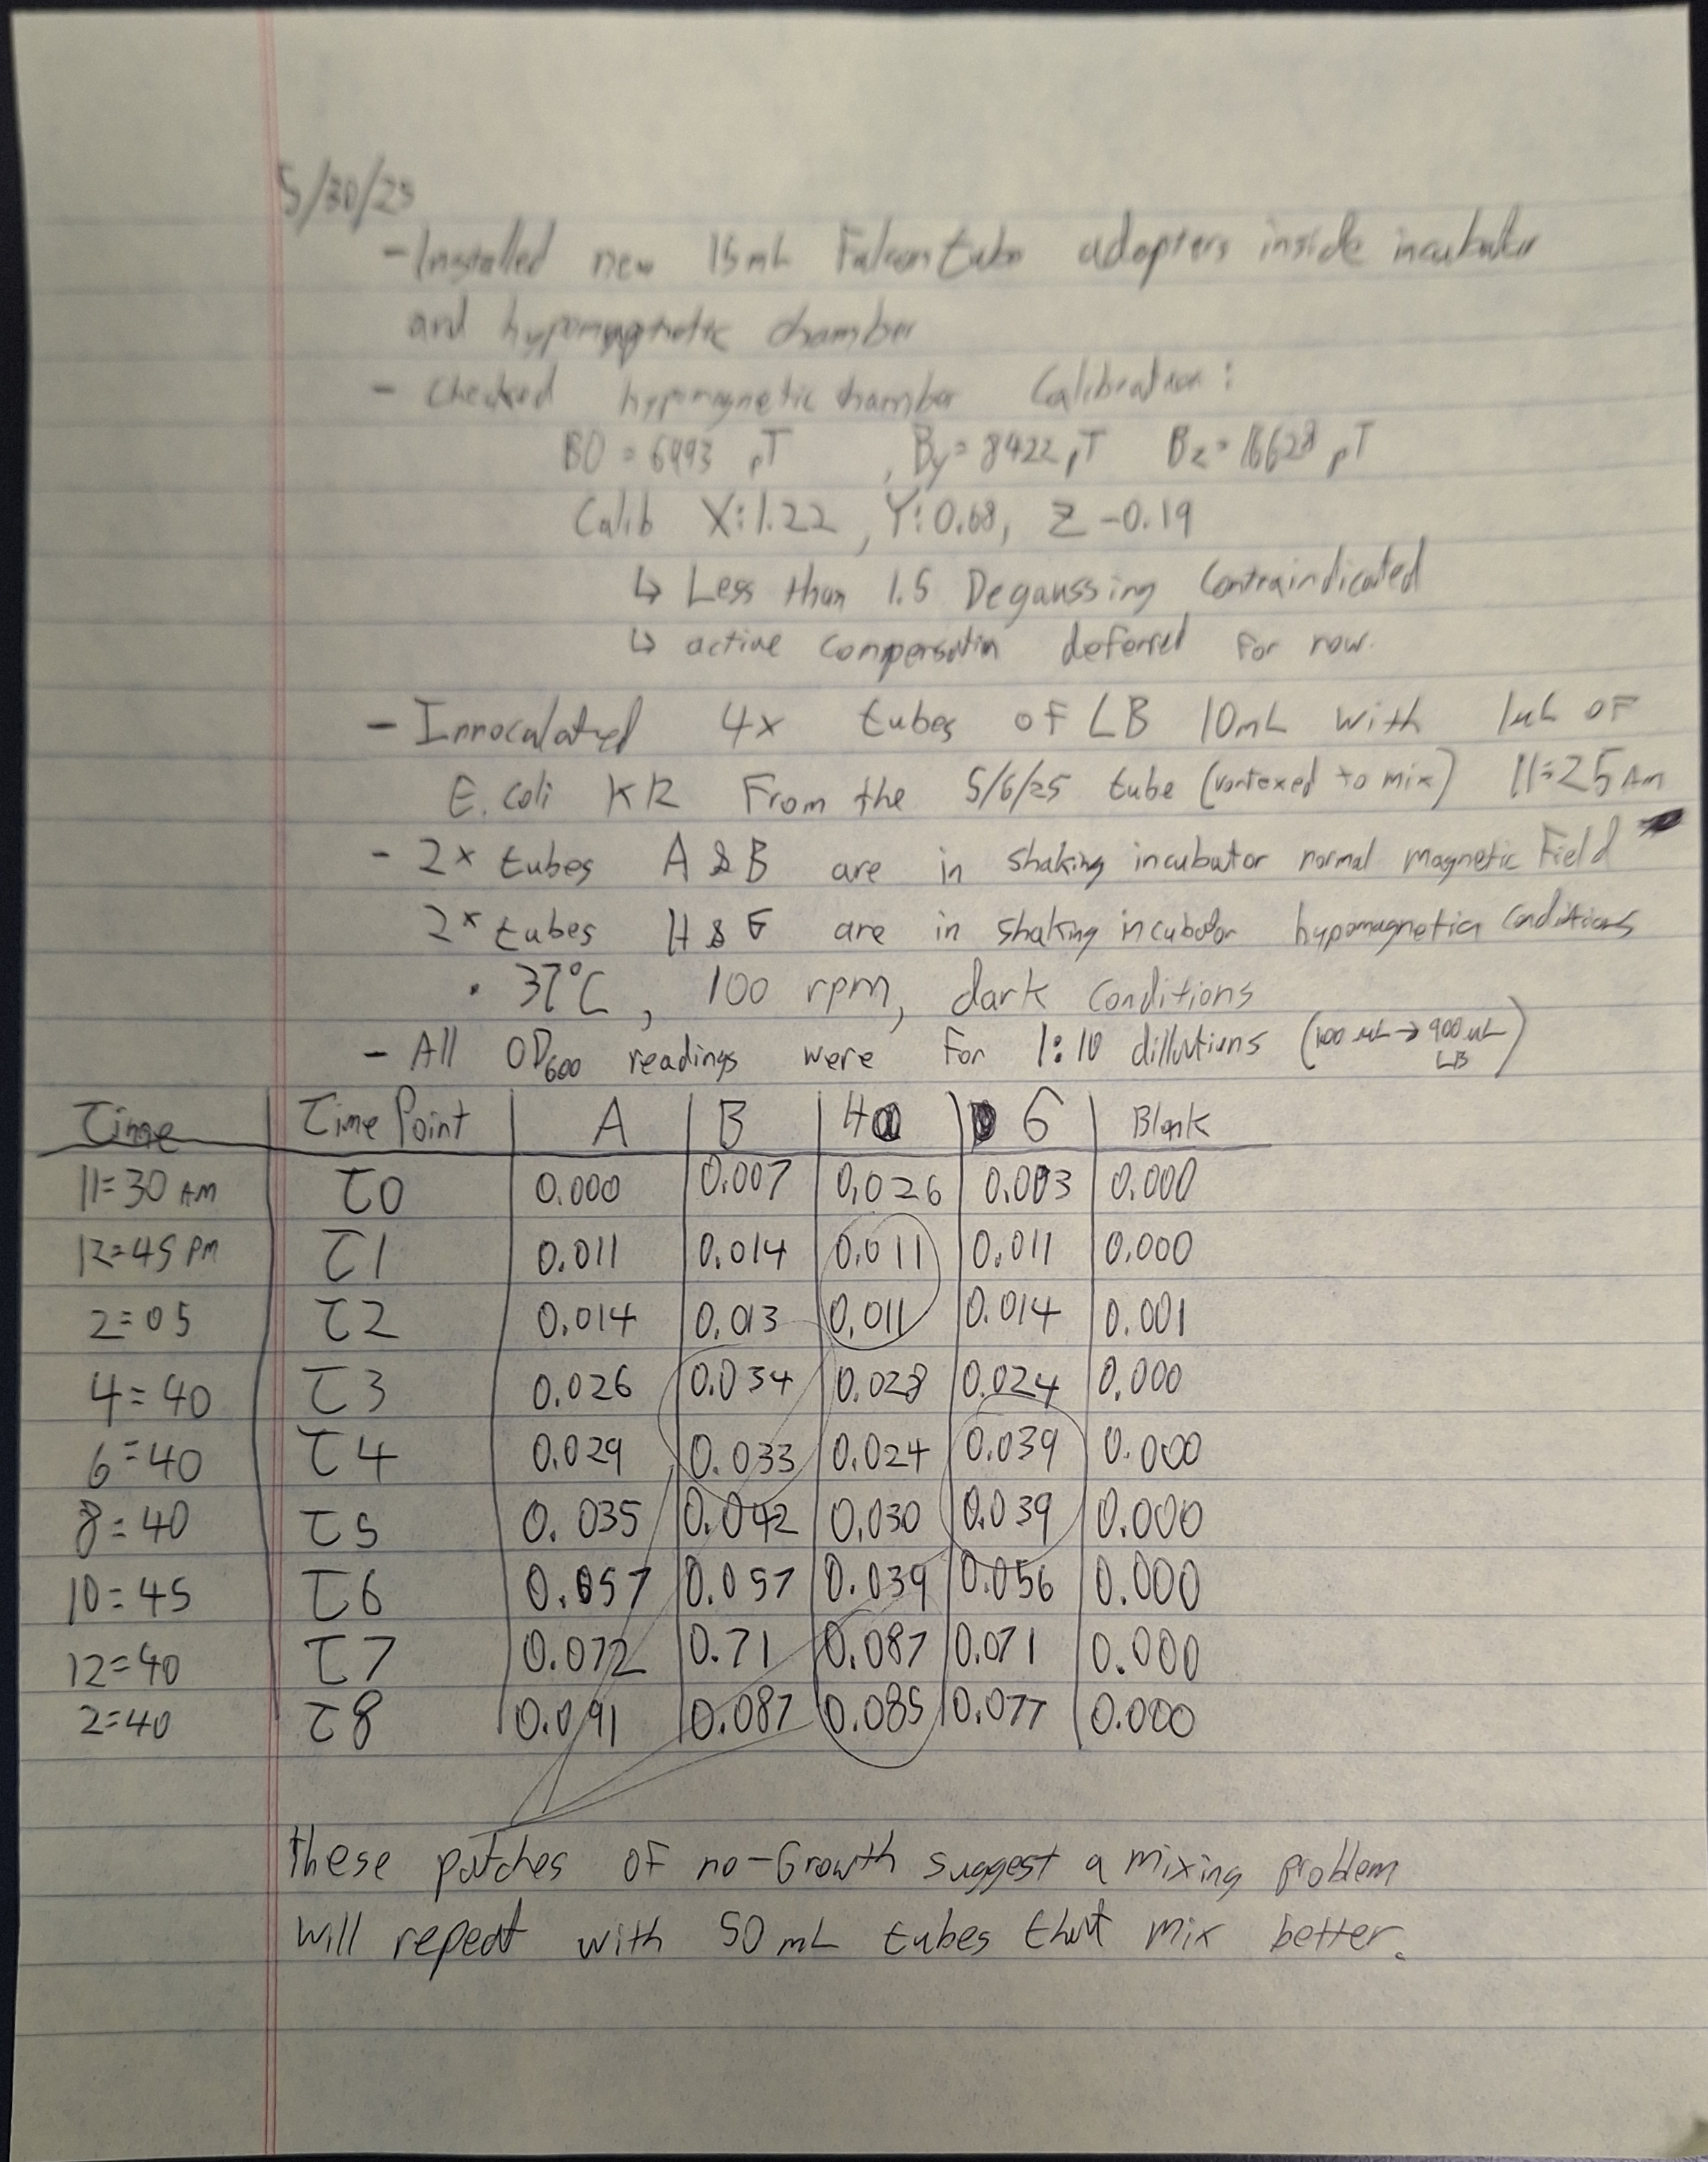 5/30/25
- Installed new 15mL Falcon tube adapters inside incubator
and hypomagnetic chamber
- Checked hypomagnetic chamber Calibration:
B0 = 6993 pT , By= 8422 pT Bz= 16628 pT
Calib X:1.22, Y:0.68, Z -0.19
↳ Less than 1.5 Degaussing Contraindicated
↳ active compensation deferred for now.
- Innoculated 4x tubes OF LB 10mL with 1uL OF
E. Coli K12 From the 5/6/25 tube (vortexed to mix) 11:25 AM
- 2x tubes A & B are in shaking incubator normal magnetic Field
2x tubes H & G are in shaking incubator hypomagnetic conditions
• 37°C, 100 rpm, dark conditions
- All OD600 readings were For 1:10 dillutions (100 uL → 900 uL LB)
Time Time Point A B H G Blank
11:30 AM T0 0.000 0.007 0.026 0.003 0.000
12:45 PM T1 0.011 0.014 0.011 0.011 0.000
2:05 T2 0.014 0.013 0.011 0.014 0.001
4:40 T3 0.026 0.034 0.028 0.024 0.000
6:40 T4 0.029 0.033 0.024 0.039 0.000
8:40 T5 0.035 0.042 0.030 0.039 0.000
10:45 T6 0.057 0.057 0.039 0.056 0.000
12:40 T7 0.072 0.71 0.087 0.071 0.000
2:40 T8 0.091 0.087 0.085 0.077 0.000
these patches OF no-Growth suggest a mixing problem
will repeat with 50 mL tubes that mix better.